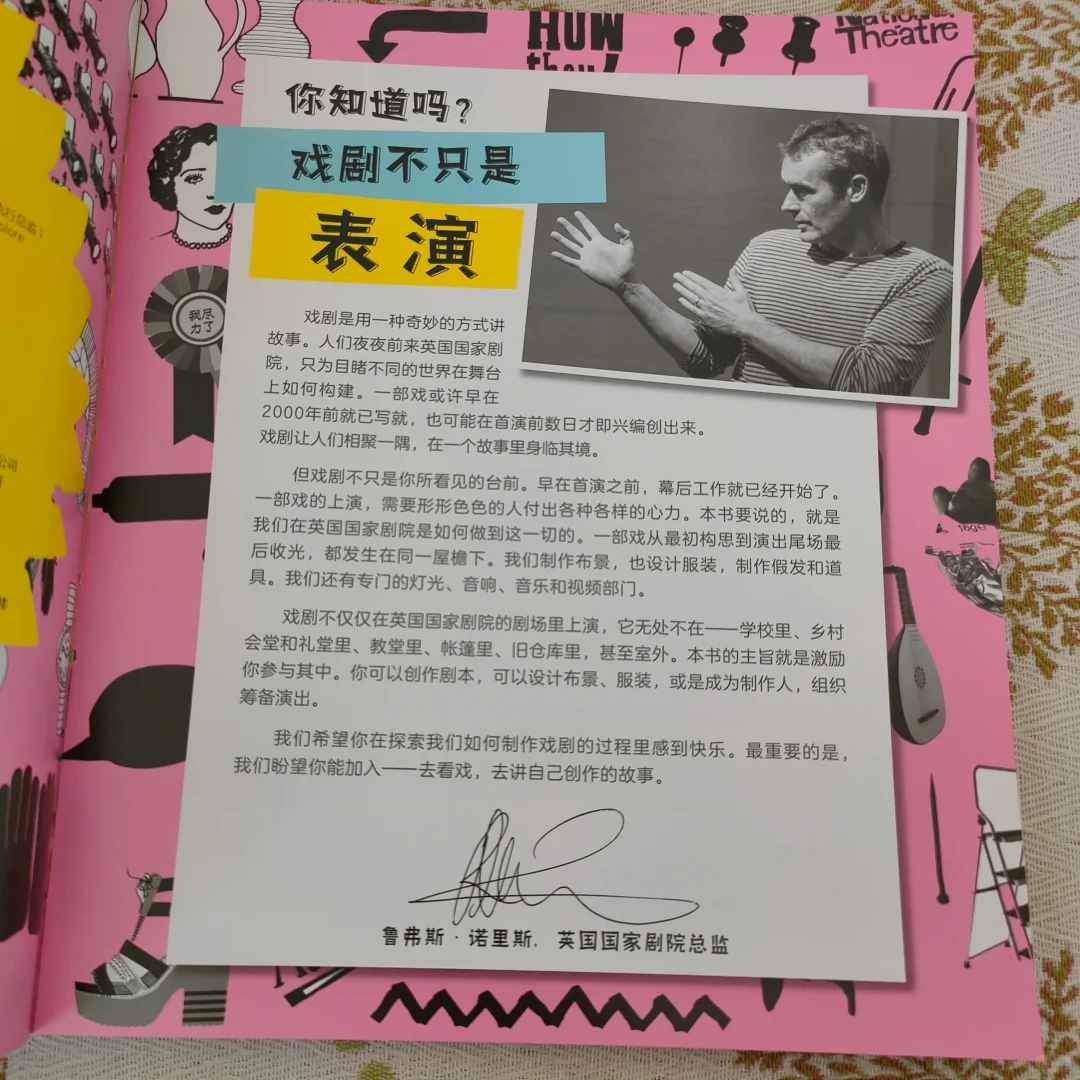 HOW
they
National
Theatre
你知道吗？
戏剧不只是
表演
执行总监）
plore
我尽
力了
戏剧是用一种奇妙的方式讲
故事。人们夜夜前来英国国家剧
院，只为目睹不同的世界在舞台
上如何构建。一部戏或许早在
2000年前就已写就，也可能在首演前数日才即兴编创出来。
戏剧让人们相聚一隅，在一个故事里身临其境。
但戏剧不只是你所看见的台前。早在首演之前，幕后工作就已经开始了。
一部戏的上演，需要形形色色的人付出各种各样的心力。本书要说的，就是
我们在英国国家剧院是如何做到这一切的。一部戏从最初构思到演出尾场最
后收光，都发生在同一屋檐下。我们制作布景，也设计服装，制作假发和道
具。我们还有专门的灯光、音响、音乐和视频部门。
戏剧不仅仅在英国国家剧院的剧场里上演，它无处不在——学校里、乡村
会堂和礼堂里、教堂里、帐篷里、旧仓库里，甚至室外。本书的主旨就是激励
你参与其中。你可以创作剧本，可以设计布景、服装，或是成为制作人，组织
筹备演出。
我们希望你在探索我们如何制作戏剧的过程里感到快乐。最重要的是，
我们盼望你能加入——去看戏，去讲自己创作的故事。
鲁弗斯·诺里斯，英国国家剧院总监
公司